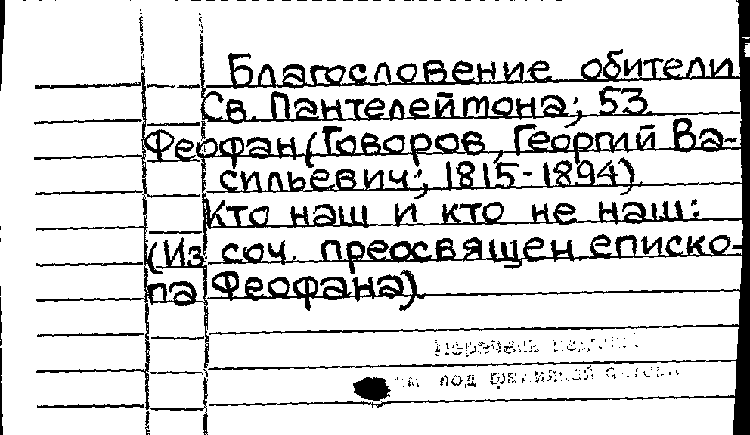 Благословение обители
Св. Пантелеймона; 53.
Феофан (Говоров, Георгий Ва-
сильевич; 1815-1894).
Кто наш и кто не наш:
(Из соч. преосвящен. еписко-
па Феофана).
Перечень
под